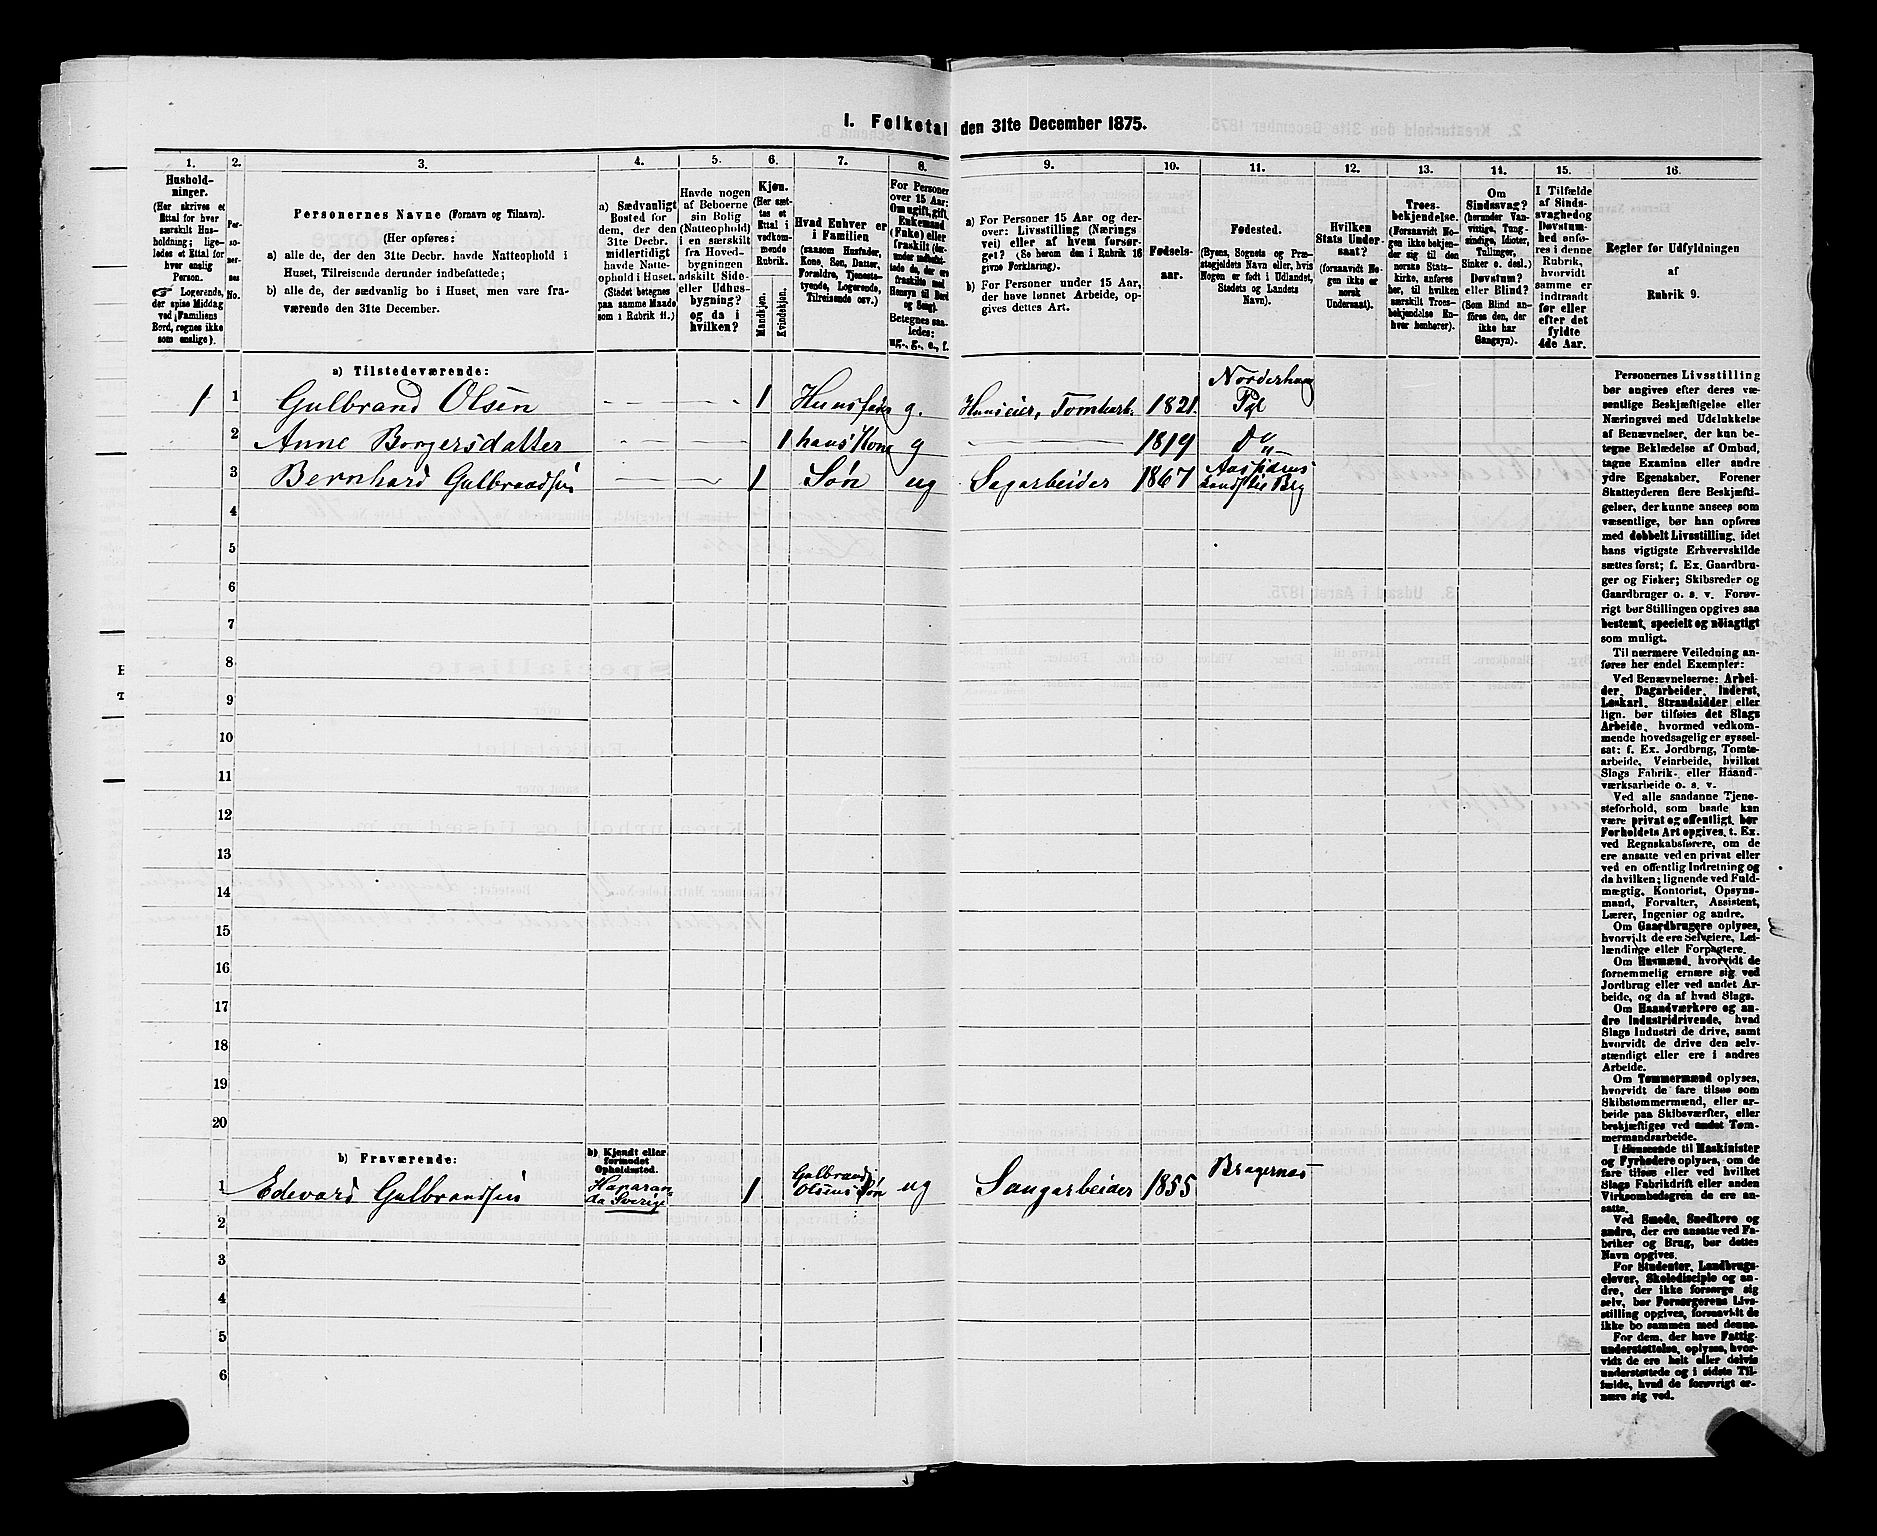 I. Folketal den 31te December 1875.
1. 2. 3. 4. 5. 6. 7. 8. 9. 10. 11. 12. 13. 14. 15. 16.
Husholdninger.
(Her skrives et Ettal for hver særskilt Husholdning; ligeledes et Ettal for hver enslig Person.
☞ Logerende, der spise Middag ved Familiens Bord, regnes ikke som enslige).
Personernes No.
Personernes Navne (Fornavn og Tilnavn).
(Her opføres:
a) alle de, der den 31te Decbr. havde Natteophold i Huset, Tilreisende derunder indbefattede;
b) alle de, der sædvanlig bo i Huset, men vare fraværende den 31te December.
a) Sædvanligt Bosted for dem, der den 31te Decbr. midlertidigt havde Natteophold i Huset. (Stedet betegnes paa samme Maade som i Rubrik 11.)
Havde nogen af Beboerne sin Bolig (Natteophold) i en særskilt fra Hovedbygningen adskilt Side- eller Udhusbygning? og da i hvilken?
Kjøn. (Her sættes et Ettal i vedkommende Rubrik.
Mandkjøn. Kvindekjøn.
Hvad Enhver er i Familien (saasom Husfader, Kone, Søn, Datter, Forældre, Tjenestetyende, Logerende, Tilreisende osv.)
For Personer over 15 Aar: Om ugift, gift, Enkemand (Enke) eller fraskilt
Betegnes saaledes: ug., g., e., f.
a) For Personer 15 Aar og derover: Livsstilling (Næringsvei) eller af hvem forsørget? (Se herom den i Rubrik 16 givne Forklaring).
b) For Personer under 15 Aar, der have lønnet Arbeide, opgives dettes Art.
Fødselsaar.
Fødested.
(Byens, Sognets og Præstegjeldets Navn eller, hvis Nogen er født i Udlandet, Stedets og Landets Navn).
Hvilken Stats Undersaat? (forsaavidt Nogen ikke er norsk Undersaat).
Troesbekjendelse. (Forsaavidt Nogen ikke bekjender sig til den norske Statskirke, anføres her, til hvilken særskilt Troesbekjendelse Enhver henhører).
Om Sindssvag? (herunder Vanvittige, Tungsindige, Idioter, Tullinger, Sinker o. desl.) Døvstum? eller Blind? (Som Blind anføres den, der ikke har Gangsyn).
I Tilfælde af Sindssvaghed og Døvstumhed anføres i denne Rubrik, hvorvidt samme er indtraadt før eller efter det fyldte 4de Aar.
Regler for Udfyldningen af Rubrik 9.
a) Tilstedeværende:
1 1 Gulbrand Olsen 1 Huusfader g. Huuseier, Tomtarb. 1821. Norderhaug Pgl
2 Anne Borgersdatter 1 hans Kone g 1819 Do
3 Bernhard Gulbrandsen 1 Søn ug Sagarbeider 1867
4
5
6
7
8
9
10
11
12
13
14
15
16
17
18
19
20
b) Fraværende:
b) Kjendt eller formodet Opholdssted.
1 Edevard Gulbrandsen Haparanda Sverige 1 Gulbrand Olsens Søn ug Saugarbeider 1855 Bragernæs
2
3
4
5
6
Personernes Livsstilling
bør angives efter deres væsentlige Beskjæftigelse eller
Næringsvei med Udelukkelse
af Benævnelser, der kun betegne Beklædelse af Ombud,
tagne Examina eller andre
ydre Egenskaber. Forener
Skatteyderen flere Beskjæftigelser, der kunne ansees som
væsentlige, bør han opføres
med dobbelt Livsstilling, idet
hans vigtigste Erhvervskilde
sættes først; f. Ex. Gaardbruger og Fisker; Skibsreder og
Gaardbruger o. s. v. Forøvrigt bør Stillingen opgives saa
bestemt, specielt og nøiagtigt
som muligt.
Til nærmere Veiledning anføres her endel Exempler:
Ved Benævnelserne: Arbeider, Dagarbeider, Inderst,
Løskarl, Strandsidder eller
lign. bør tilføies det Slags
Arbeide, hvormed vedkommende hovedsagelig er sysselsat; f. Ex. Jordbrug, Tomtearbeide, Veiarbeide, hvilket
Slags Fabrik- eller Haandværksarbeide o. s. v.
Ved alle saadanne Tjenesteforhold, som baade kan
være privat og offentligt, bør
Forholdets Art opgives, t. Ex.
ved Regnskabsførere, om de
ere ansatte ved en privat eller
ved en offentlig Indretning og
da hvilken; lignende ved Fuldmægtig, Kontorist, Opsynsmand, Forvalter, Assistent,
Lærer, Ingeniør og andre.
Om Gaardbrugere oplyses,
hvorvidt de ere Selveiere, Leilændinge eller Forpagtere.
Om Husmænd, hvorvidt de
fornemmelig ernære sig ved
Jordbrug eller ved andet Arbeide, og da af hvad Slags.
Om Haandværkere og andre Industridrivende, hvad
Slags Industri de drive, samt
hvorvidt de drive den selvstændigt eller ere i andres
Arbeide.
Om Tømmermænd oplyses,
hvorvidt de fare tilsøs som
Skibstømmermænd, eller arbeide paa Skibsværfter, eller
beskjæftiges ved andet Tømmermandsarbeide.
I Henseende til Maskinister
og Fyrbødere oplyses, om de
fare tilsøs eller ved hvilket
Slags Fabrikdrift eller anden
Virksomhedsgren de ere ansatte.
Ved Smede, Snedkere og
andre, der ere ansatte ved Fabriker og Brug, bør dettes
Navn opgives.
For Studenter, Landbrugselever, Skoledisciple og andre, der ikke forsørge sig
selv, bør Forsørgerens Livsstilling opgives, forsaavidt de
ikke bo sammen med denne.
For dem, der have Fattigunderstøttelse, oplyses, hvorvidt de ere helt eller delvis
understøttede og i sidste Tilfælde, hvad de forøvrigt ernære sig ved.